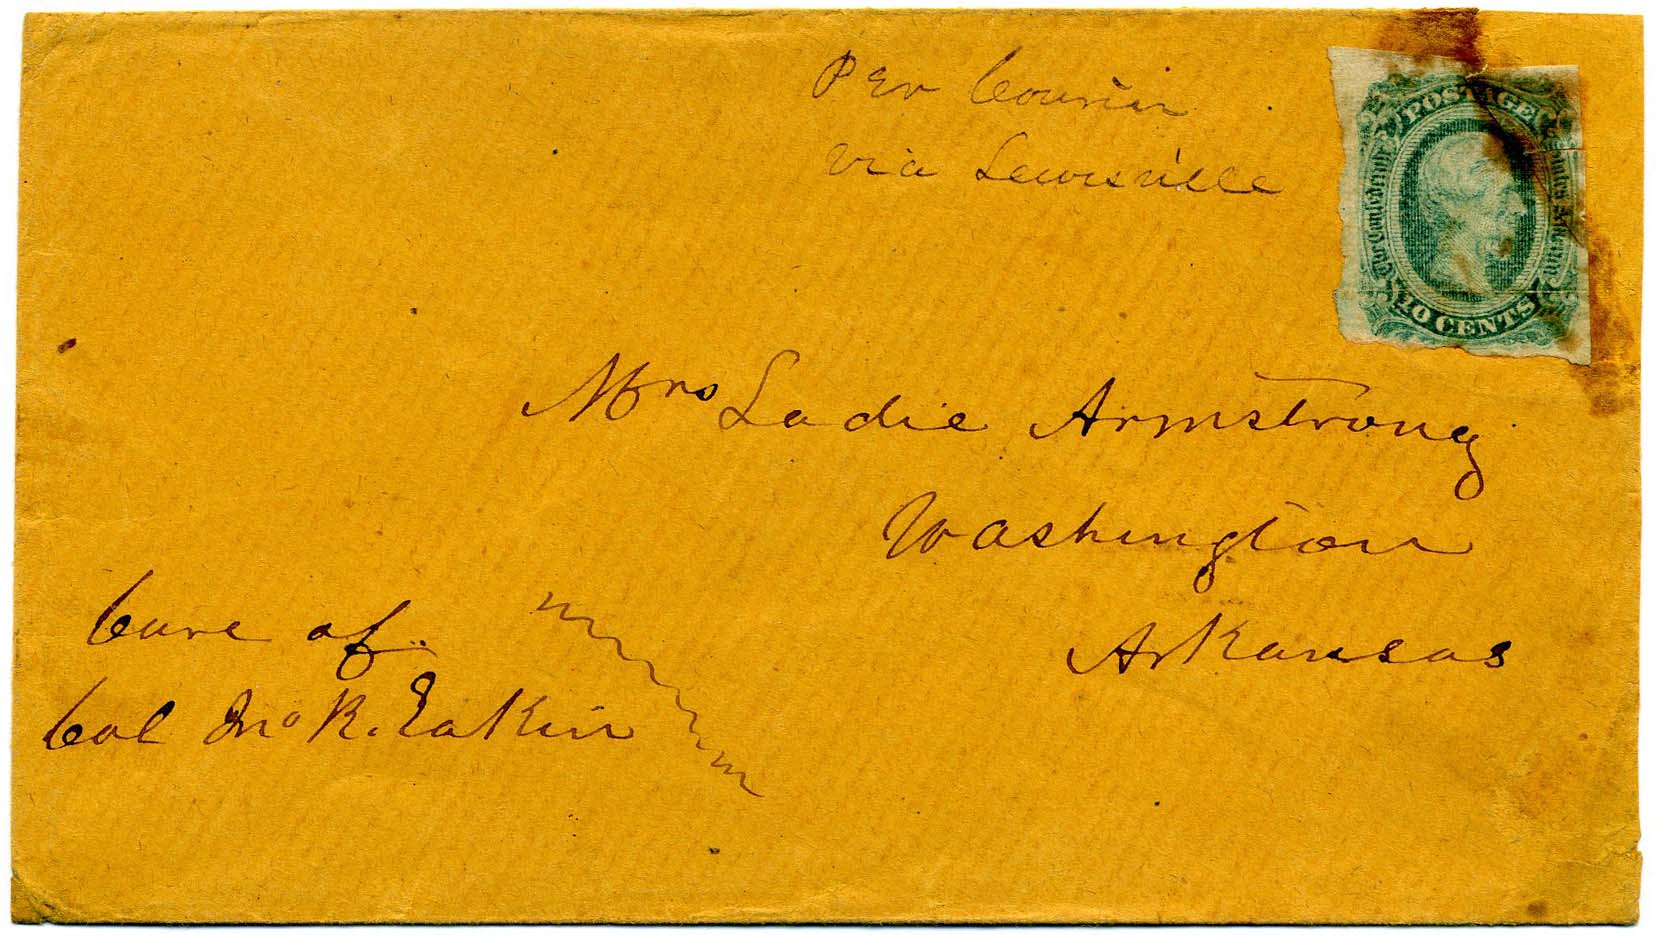 Per Courier
via Lewisville
POSTAGE
The Confederate States of America
10 CENTS
Mrs Sadie Armstrong
Washington
Arkansas
Care of
Col Jno R. Eakin